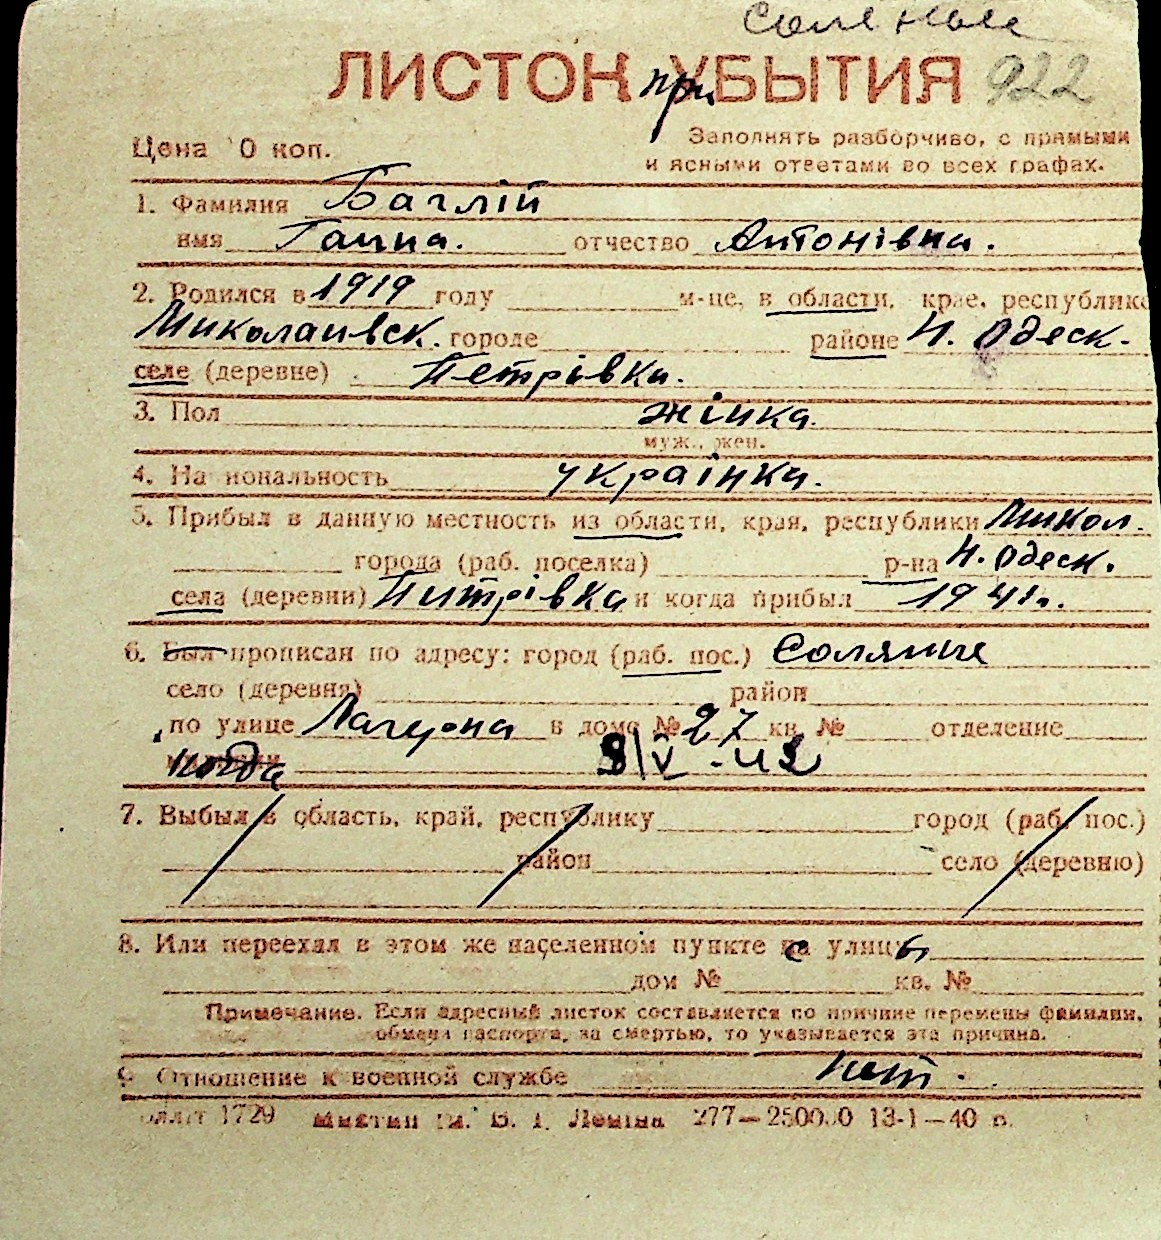 ЛИСТОК при УБЫТИЯ 922
Цена 0 коп.
Заполнять разборчиво, с прямыми
и ясными ответами во всех графах.
1. Фамилия Баглій
имя Ганна. отчество Антонівна.
2. Родился в 1919 году м-це, в области, крае, республике
Миколаивск. городе районе Н. Одеск.
селе (деревне) Петрівка.
3. Пол жінка.
муж., жен.
4. На иональность українка.
5. Прибыл в данную местность из области, края, республики Микол.
города (раб. поселка) р-на Н. Одеск.
села (деревни) Питрівка и когда прибыл 1941
6. Был прописан по адресу: город (раб. пос.) Соляные
село (деревня) район
по улице в доме № 27 кв. № отделение
когда 8/V-42
7. Выбыл в область, край, республику город (раб. пос.)
район село (деревню)
8. Или переехал в этом же населенном пункте с улицы
дом № кв. №
Примечание. Если адресный листок составляется по причине перемены фамилии,
обмена паспорта, за смертью, то указывается эта причина.
9 Отношение к военной службе нет.
1729 Ленина 277— 13-1—40